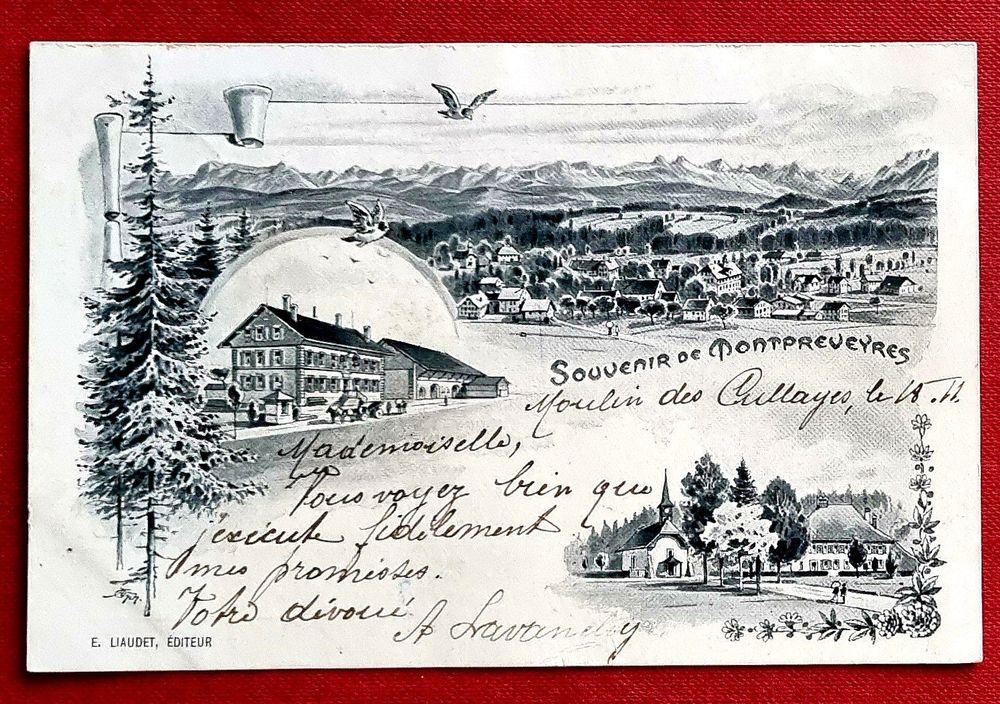 SOUVENIR DE MONTPREVEYRES
Moulin des Cullayes, le 18. 11
Mademoiselle,
Vous voyez bien que
j'exécute fidèlement
mes promesses.
Votre dévoué
A Lavanchy
E. LIAUDET, ÉDITEUR